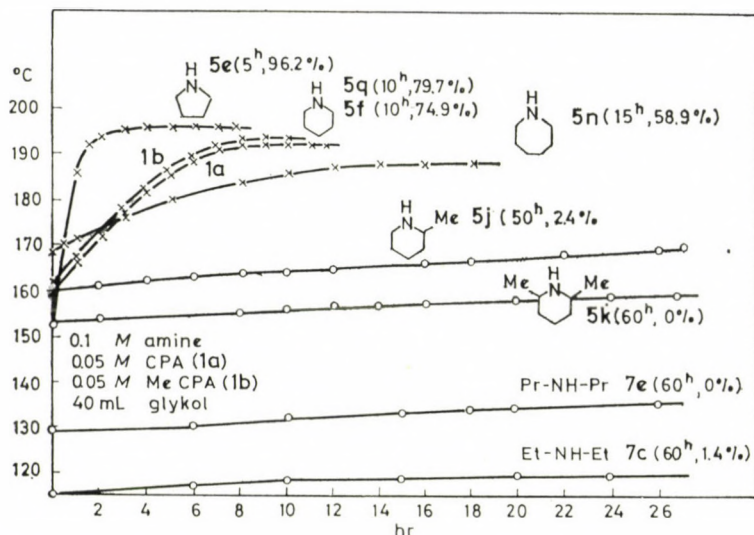 °C
200
190
180
170
160
150
140
130
120
H
N
5e (5h, 96.2%)
H
N
5q (10h, 79.7%)
5f (10h, 74.9%)
H
N
5n (15h, 58.9%)
1b
1a
H
N
Me 5j (50h, 2.4%
H
Me N Me
5k (60h, 0%)
0.1 M amine
0.05 M CPA (1a)
0.05 M Me CPA (1b)
40 mL glykol
Pr-NH-Pr 7e (60h, 0%)
Et-NH-Et 7c (60h, 1.4%)
2 4 6 8 10 12 14 16 18 20 22 24 26
hr